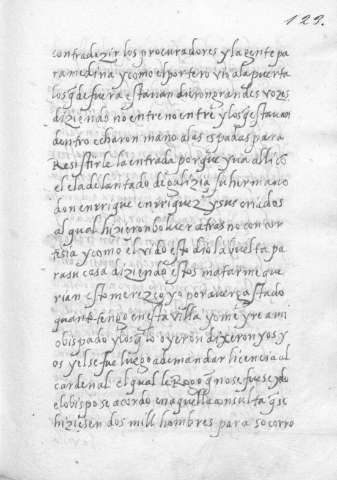 129.
contradezir los procuradores y la gente pa
ra medina y como el portero vio a la puerta
los q de fuera estavan dieron grandes vozes
diziendo no entre no entre y los q estavan
dentro echaron mano a las espadas para
Resistirle la entrada porque yva alli
el adelantado de galizia su hermano
don enrrique enrriquez y sus criados
al qual hizieron bolver atras no con cor
tesia y como el vido esto dio la buelta pa
ra su casa diziendo estos matar me que
rian esto merezco yo por aver estado
quanto tengo en esta villa yo me yre a mi
obispado y los q lo oyeron dixeron yos y
os y el se fue luego a demandar licencia al
cardenal el qual le Rogo q no se fuese y do
el obispo se acordo en aquella consulta q se
hiziesen dos mill hombres para socorro